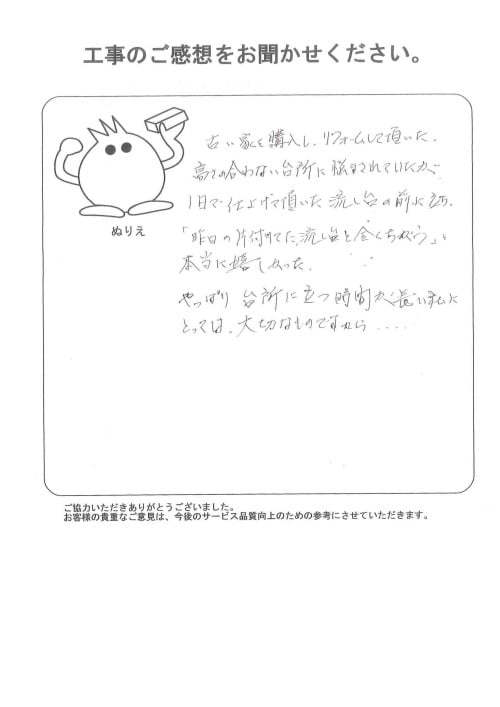 工事のご感想をお聞かせください。
ぬりえ
古い家を購入し、リフォームして頂いた。
高さの合わない台所に悩まされていたが
1日で仕上げて頂いた流し台の前に立ち、
「昨日の片付けてた流し台と全くちがう」と
本当に嬉しかった。
やっぱり台所に立つ時間が長い私に
とっては、大切なものですから....
ご協力いただきありがとうございました。
お客様の貴重なご意見は、今後のサービス品質向上のための参考にさせていただきます。